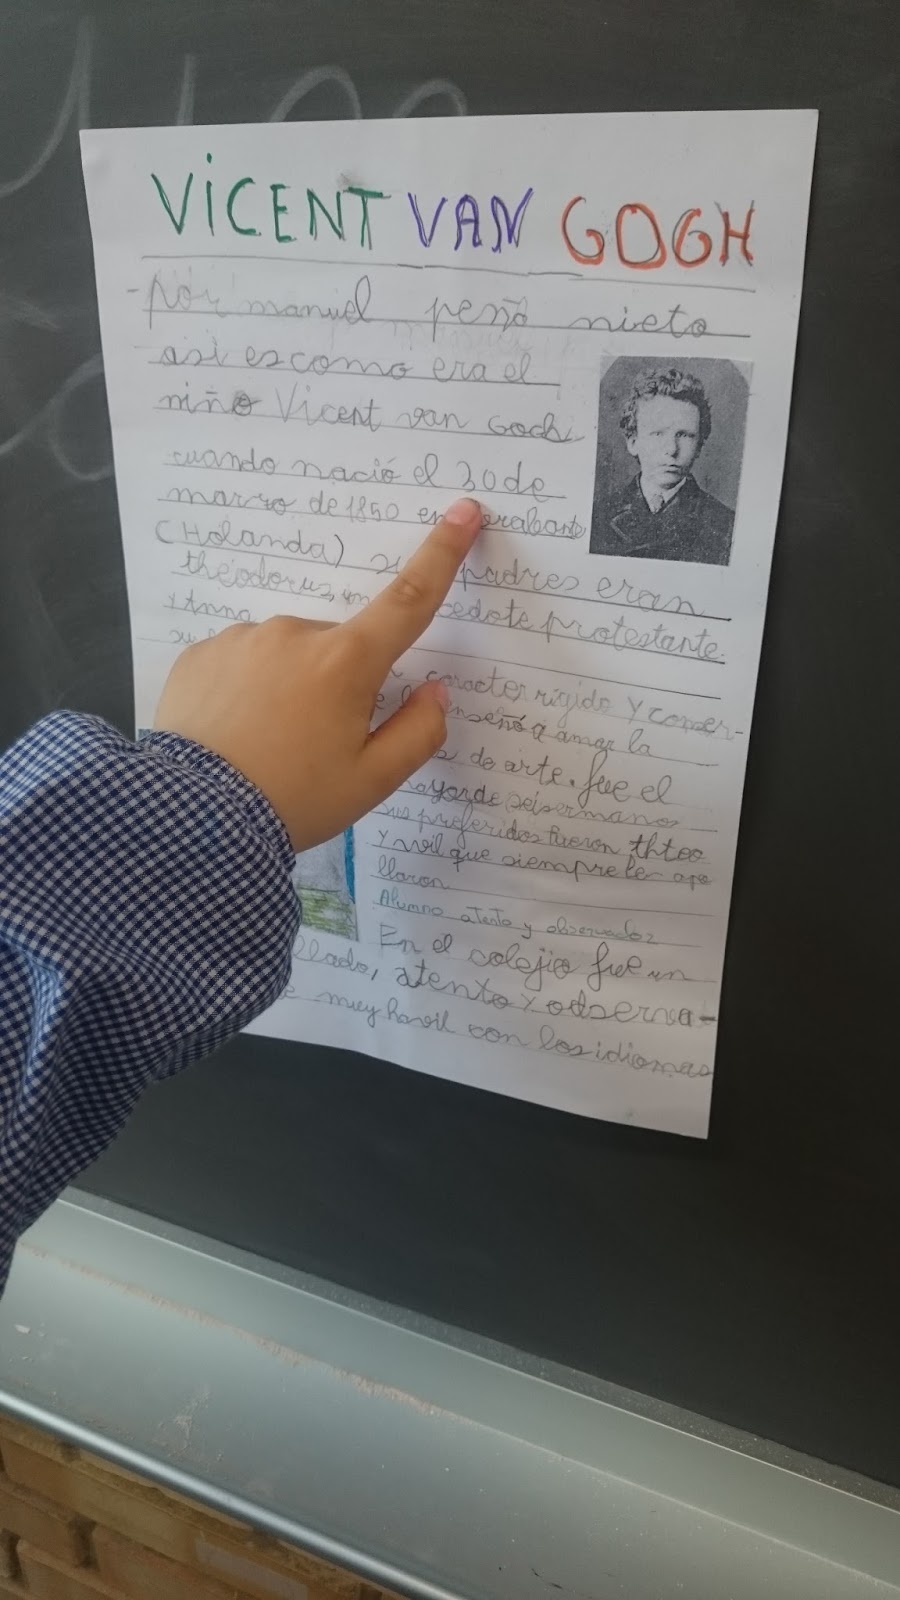 VICENT VAN GOGH
-por manuel peña nieto
asi es como era el
niño Vicent van Goch
cuando nació el 30 de
marzo de 1850 en brabante
(Holanda) padres eran
theodorus, un protestante.
y Anna
caracter rigido y conser-
enseñó a amar la
de arte. fue el
mayor de seis ermanos
sus preferidos fueron thteo
y wil que siempre le apo
llaron
Alumno atento y observador
En el colejio fue un
llado, atento y odserva-
muy havil con los idiomas